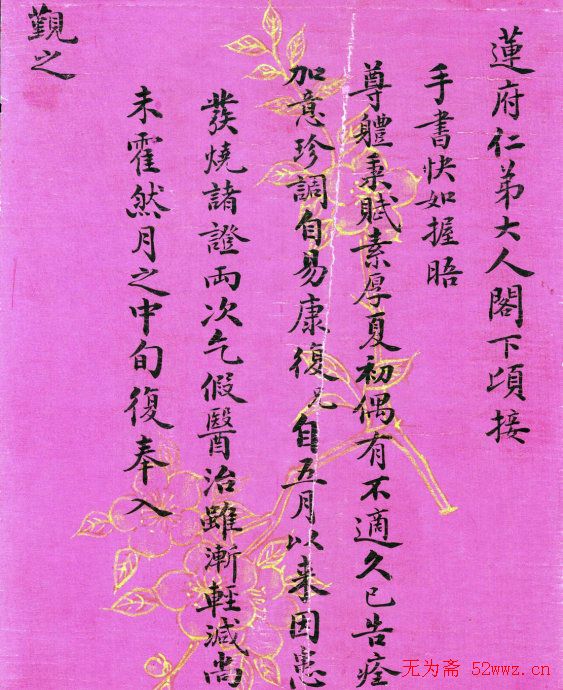 蓮府仁弟大人閣下頃接
手書快如握晤
尊體秉賦素厚夏初偶有不適久已告痊
加意珍調自易康復兄自五月以来因患
發燒諸證兩次乞假醫治雖漸輕減尚
未霍然月之中旬復奉入
覲之
无为斋 52wwz.cn